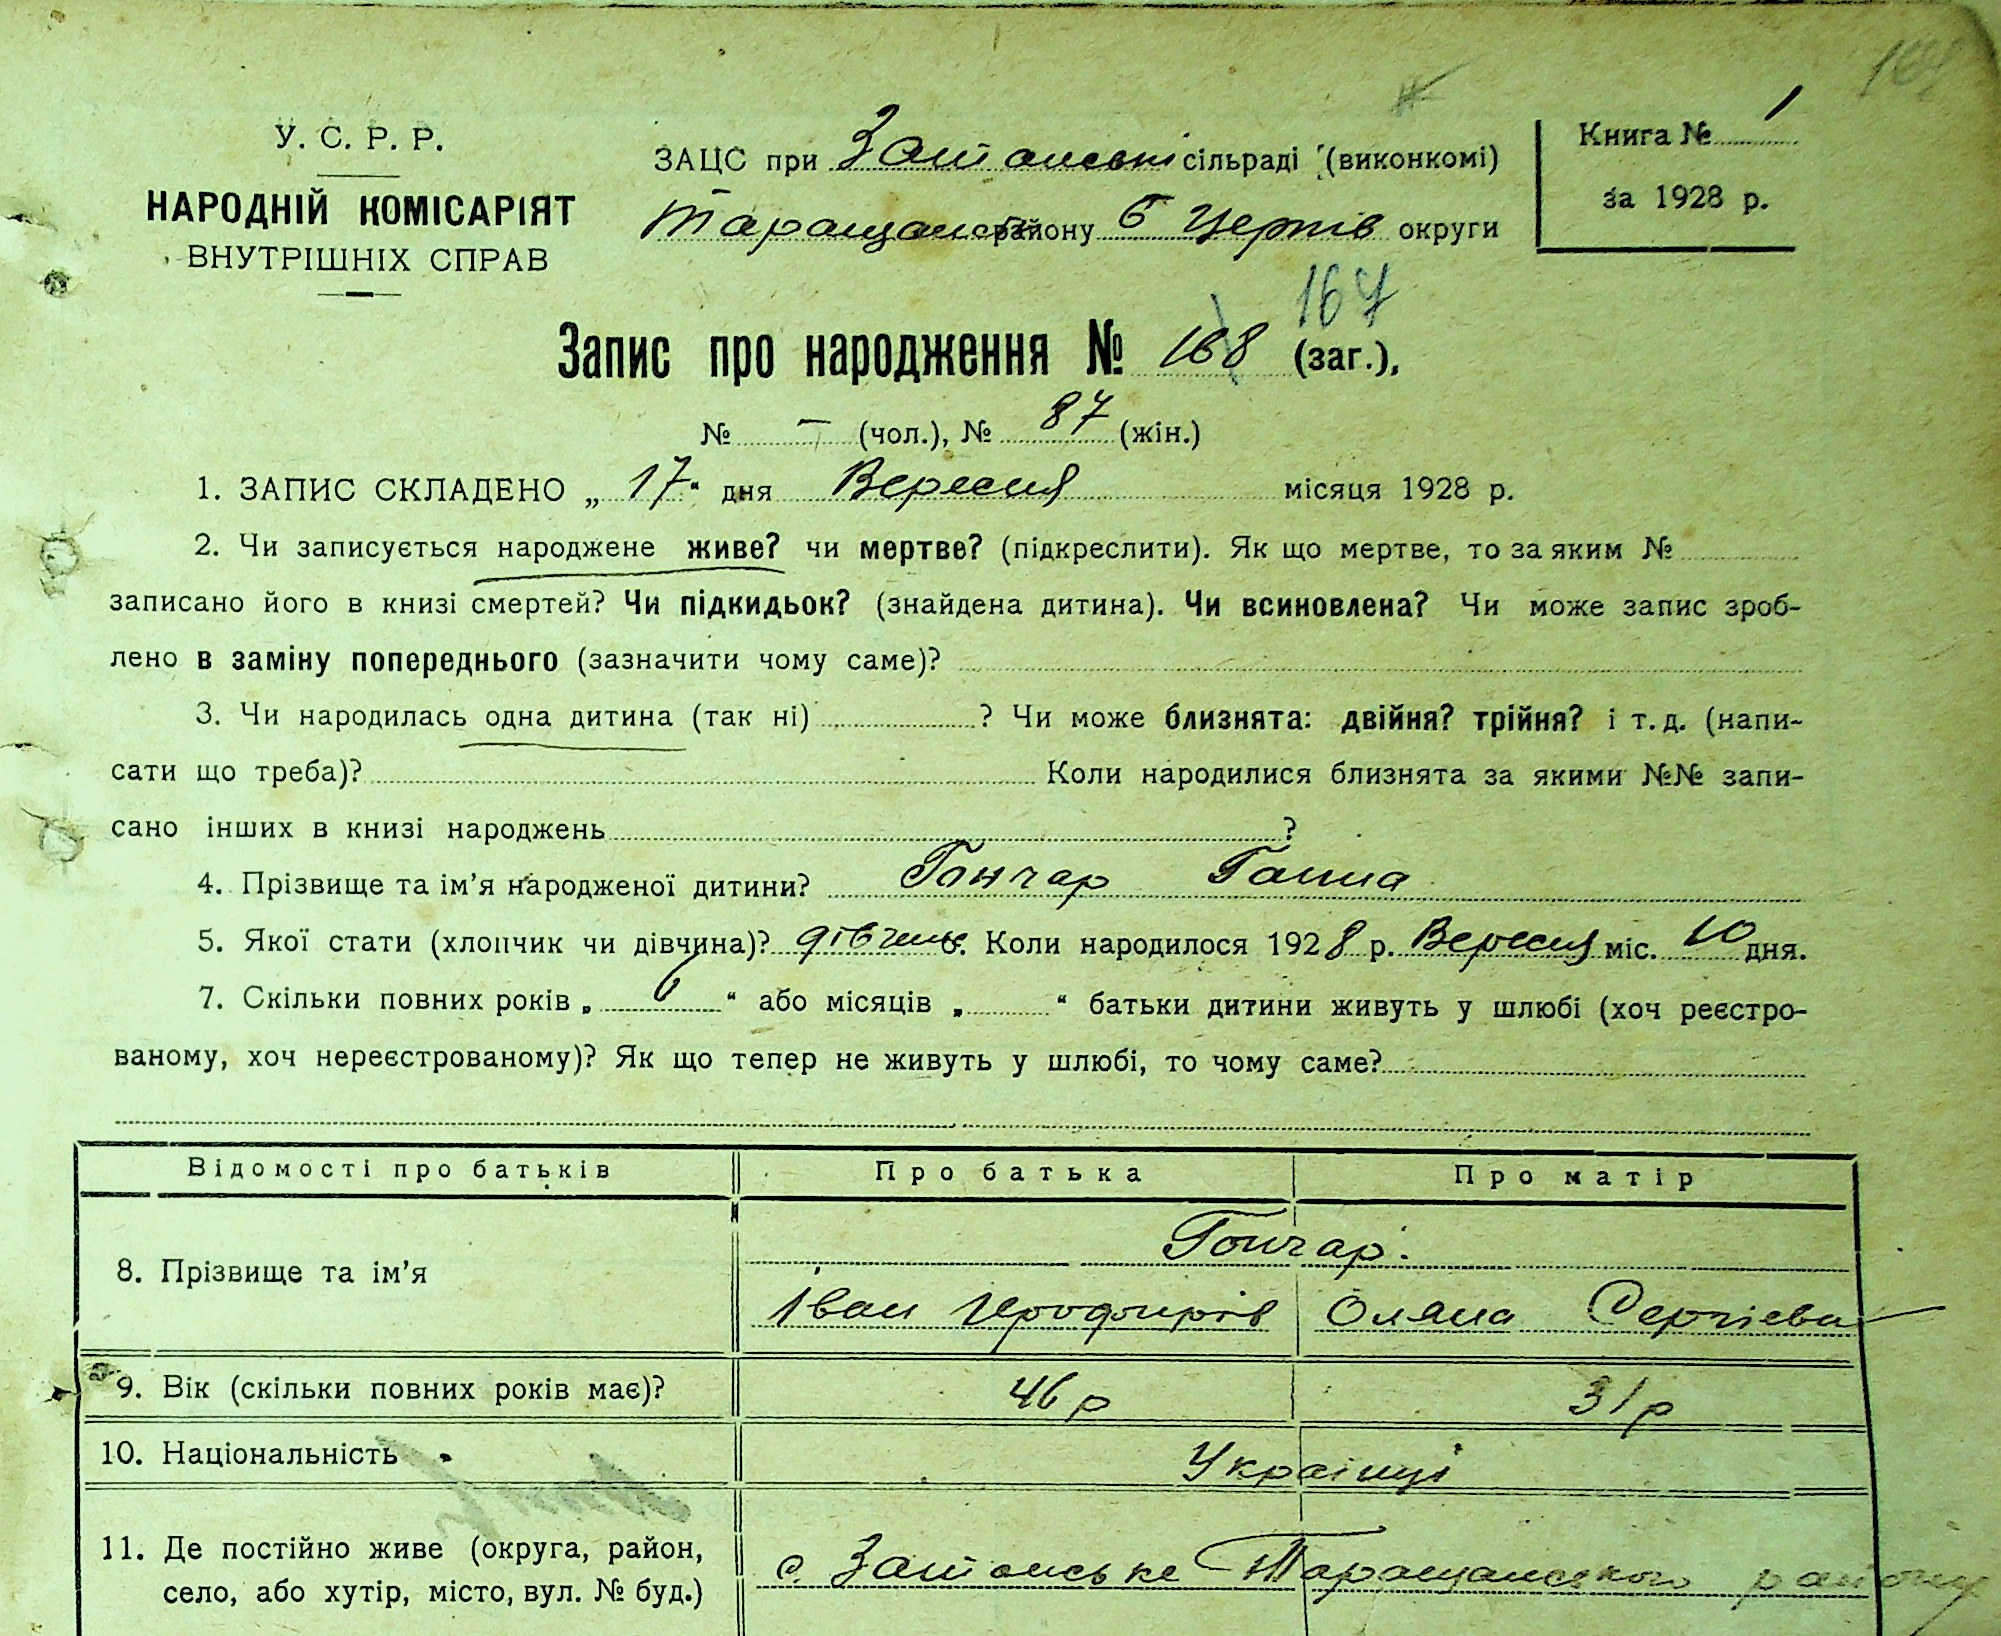 У. С. Р. Р.
НАРОДНІЙ КОМІСАРІЯТ
ВНУТРІШНІХ СПРАВ
ЗАЦС при сільраді (виконкомі)
Таращанськ району Б Церків округи
Книга № 1
за 1928 р.
167
Запис про народження № 168 (заг.),
№ — (чол.), № 87 (жін.)
1. ЗАПИС СКЛАДЕНО „ 17 “ дня Вересня місяця 1928 р.
2. Чи записується народжене живе? чи мертве? (підкреслити). Як що мертве, то за яким №
записано його в книзі смертей? Чи підкидьок? (знайдена дитина). Чи всиновлена? Чи може запис зроб-
лено в заміну попереднього (зазначити чому саме)?
3. Чи народилась одна дитина (так ні) ? Чи може близнята: двійня? трійня? і т. д. (напи-
сати що треба)? Коли народилися близнята за якими №№ запи-
сано інших в книзі народжень ?
4. Прізвище та ім’я народженої дитини? Гончар Ганна
5. Якої стати (хлопчик чи дівчина)? 6. Коли народилося 1928 р. Вересня міс. 10 дня.
7. Скільки повних років „ 6 “ або місяців „ “ батьки дитини живуть у шлюбі (хоч реєстро-
ваному, хоч нереєстрованому)? Як що тепер не живуть у шлюбі, то чому саме?
Відомості про батьків Про батька Про матір
8. Прізвище та ім’я Гончар.
Іван Оляна Сергієва
9. Вік (скільки повних років має)? 46 р 31 р
10. Національність Українці
11. Де постійно живе (округа, район, село, або хутір, місто, вул. № буд.)
с. Таращанського району